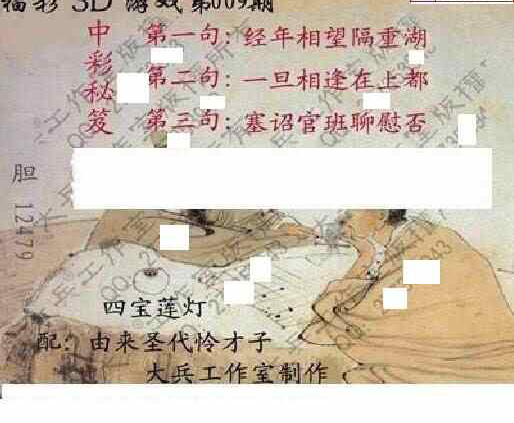 福彩 3D 游戏 第009期
中彩秘笈
第一句：经年相望隔重湖
第二句：一旦相逢在上都
第三句：塞诏官班聊慰否
胆 12479
四宝莲灯
配：由来圣代怜才子
大兵工作室制作